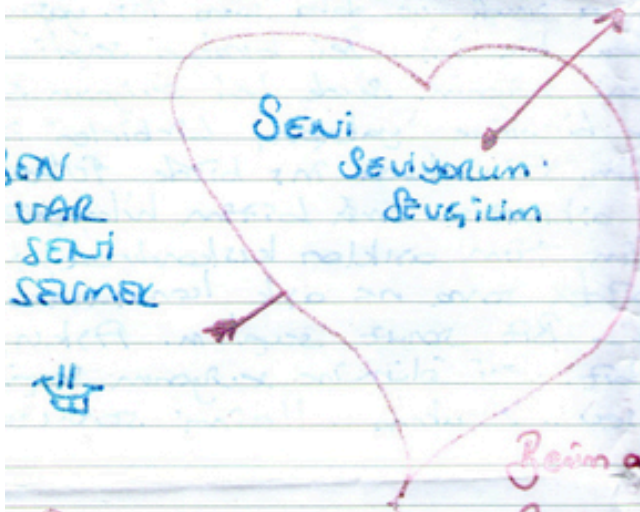 Seni
Seviyorum.
Sevgilim
SEN
VAR
SENİ
SEVMEK